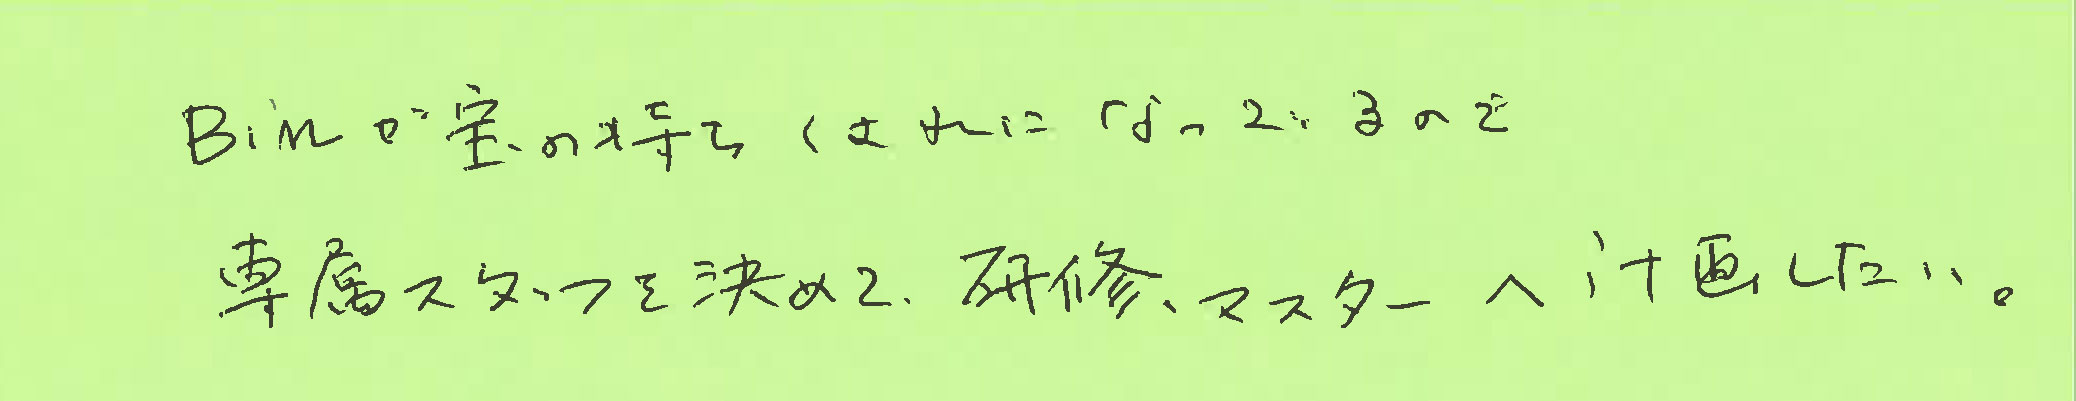 BiMが宝の持ちぐされになっているので
専属スタッフを決めて、研修、マスターへ計画したい。